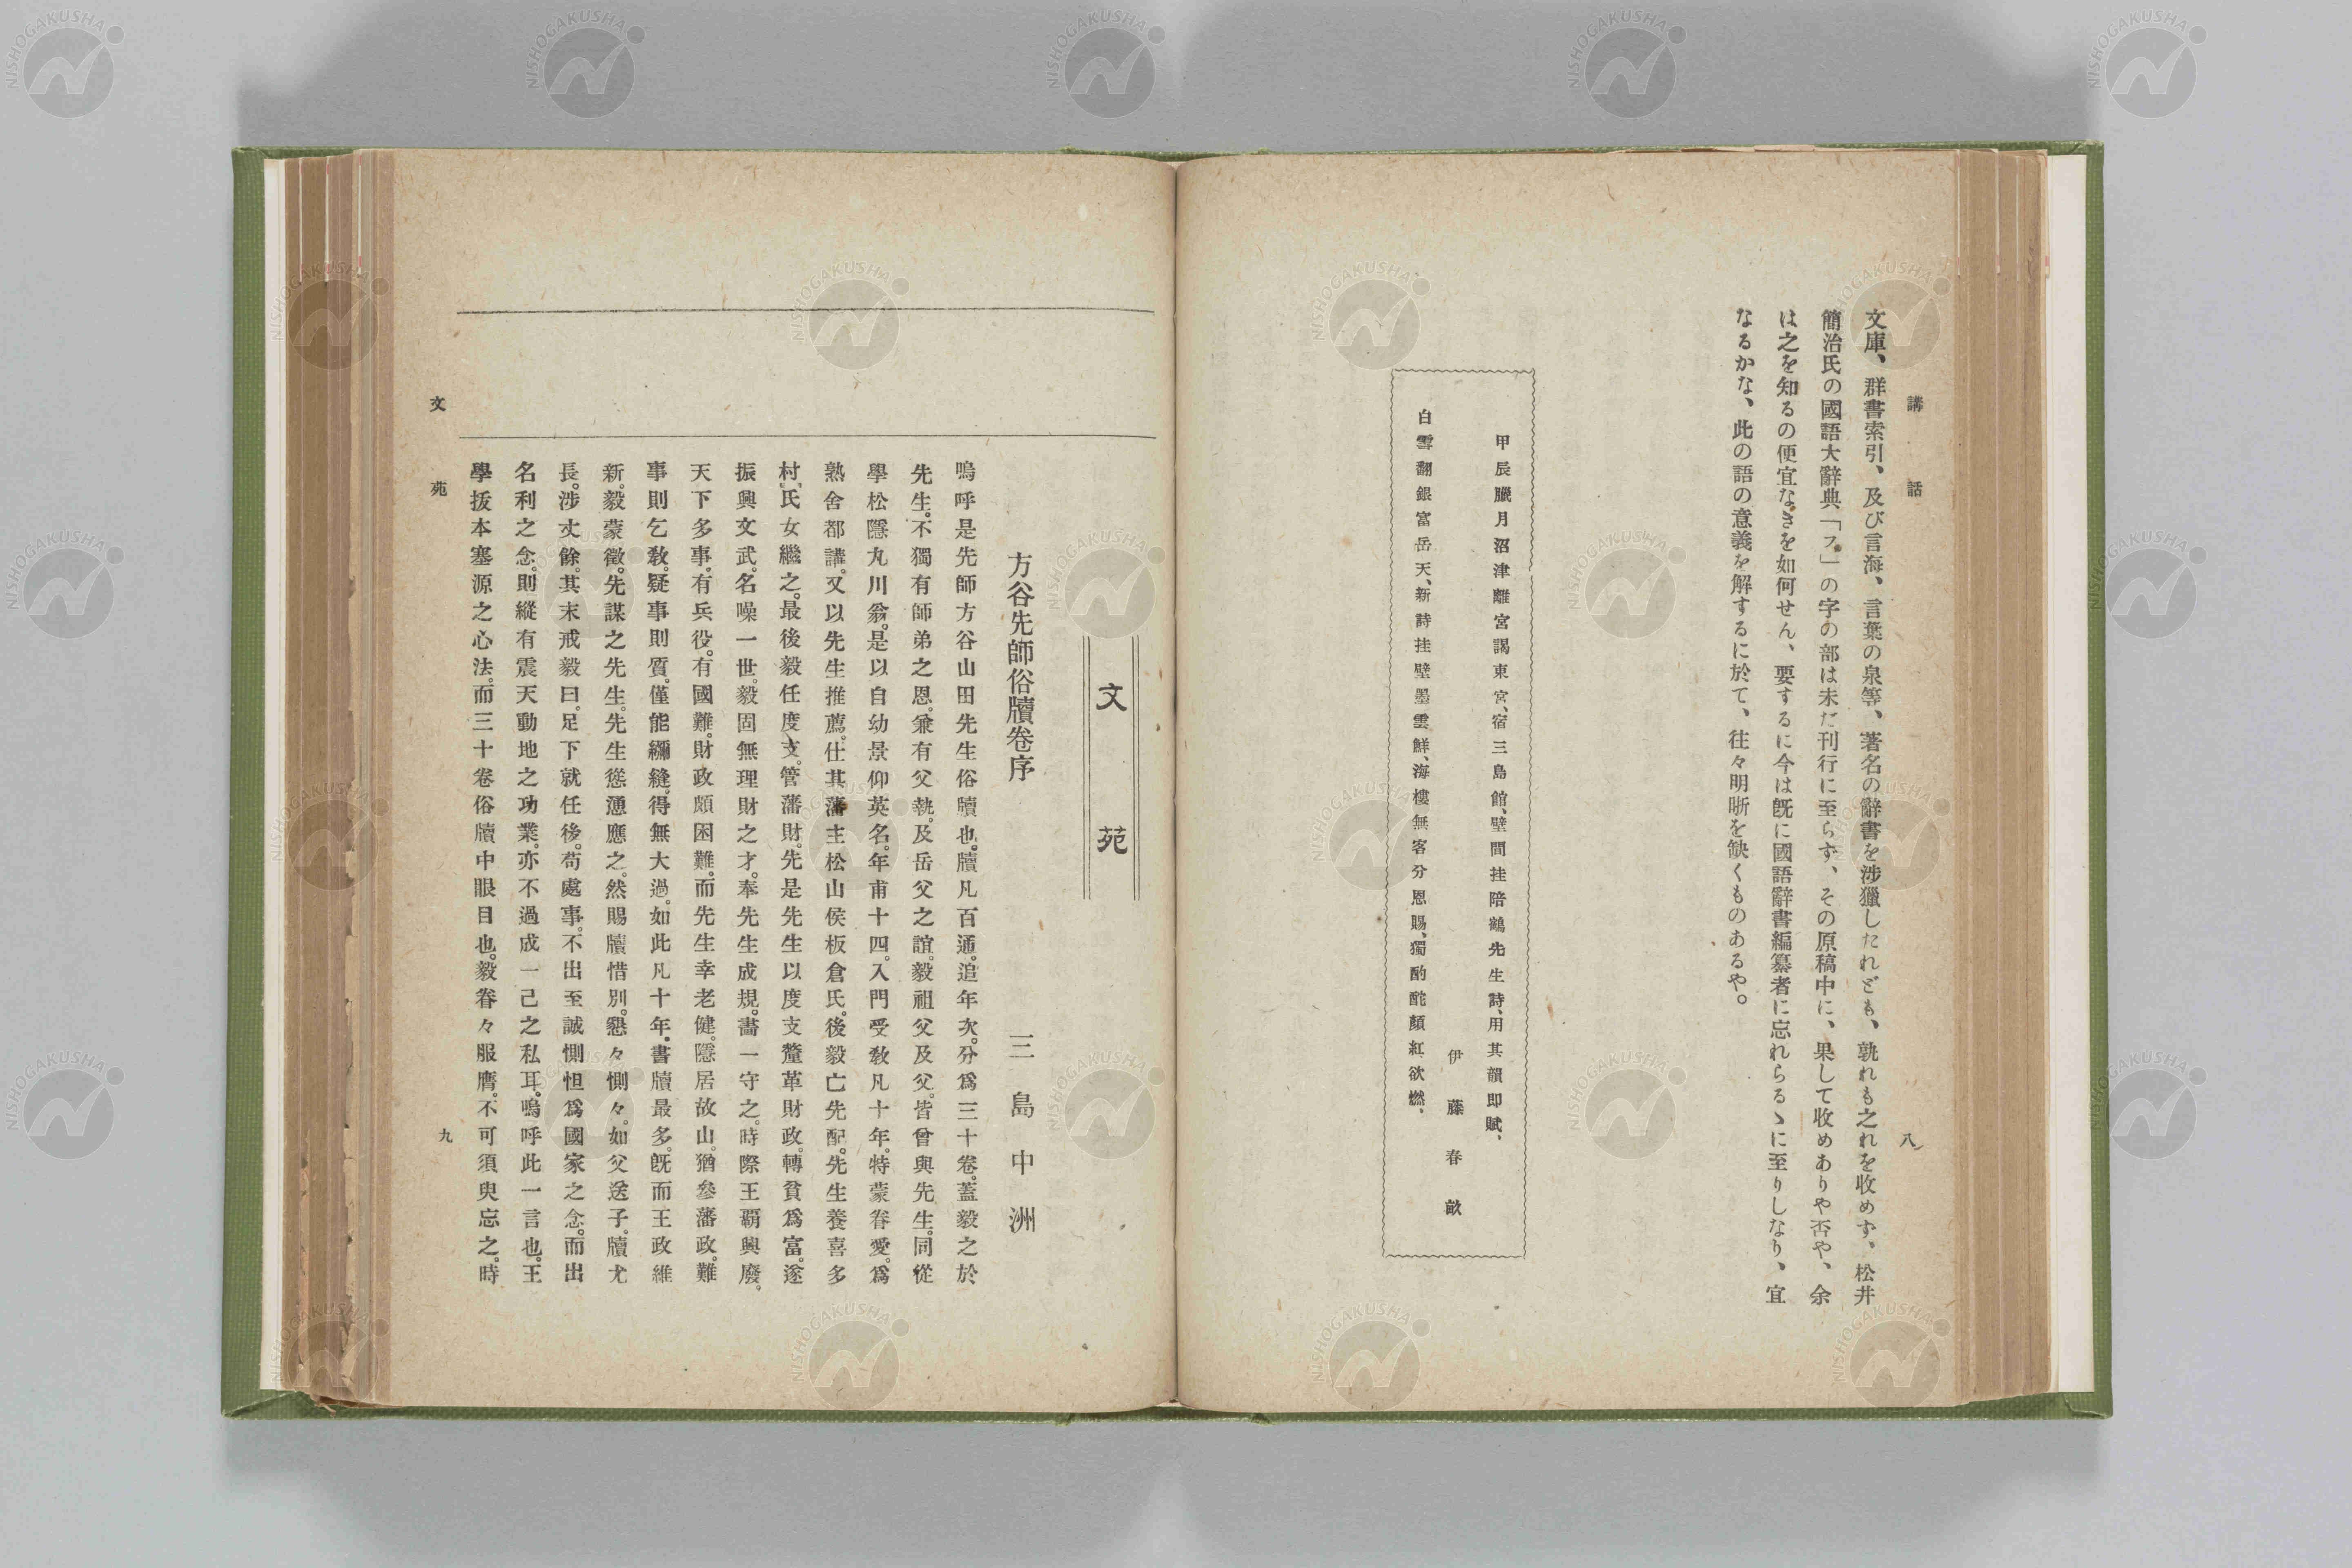 講話
八
文庫、群書索引、及び言海、言葉の泉等、著名の辭書を涉獵したれども、孰れも之れを收めず、松井
簡治氏の國語大辭典「フ」の字の部は未だ刊行に至らず、その原稿中に、果して收めありや否や、余
は之を知るの便宜なきを如何せん、要するに今は既に國語辭書編纂者に忘れらるゝに至りしなり、宜
なるかな、此の語の意義を解するに於て、往々明晰を缺くものあるや。
甲辰臘月沼津離宮謁東宮、宿三島館、壁間挂陪鶴先生詩、用其韻即賦、
伊藤春畝
白雪翻銀富岳天、新詩挂壁墨雲鮮、海樓無客分恩賜、獨酌酡顏紅欲燃、
文苑
方谷先師俗牘卷序
三島中洲
嗚呼是先師方谷山田先生俗牘也。牘凡百通。追年次。分爲三十卷。蓋毅之於
先生。不獨有師弟之恩。兼有父執。及岳父之誼。毅祖父及父。皆曾與先生。同從
學松隱丸川翁。是以自幼景仰英名。年甫十四。入門受敎凡十年。特蒙眷愛。爲
熟舍都講。又以先生推薦。仕其藩主松山侯板倉氏。後毅亡先配。先生養喜多
村氏女繼之。最後毅任度支。管藩財。先是先生以度支釐革財政。轉貧爲富。遂
振興文武。名噪一世。毅固無理財之才。奉先生成規。畵一守之。時際王覇興廢。
天下多事。有兵役。有國難。財政頗困難。而先生幸老健。隱居故山。猶參藩政。難
事則乞敎。疑事則質。僅能繃縫。得無大過。如此凡十年。書牘最多。既而王政維
新。毅蒙徵。先謀之先生。先生慫慂應之。然賜牘惜別。懇々惻々。如父送子。牘尤
長。涉丈餘。其末戒毅曰。足下就任後。苟處事。不出至誠惻怛爲國家之念。而出
名利之念。則縱有震天動地之功業。亦不過成一己之私耳。嗚呼此一言也。王
學拔本塞源之心法。而三十卷俗牘中眼目也。毅眷々服膺。不可須臾忘之。時
文苑
九